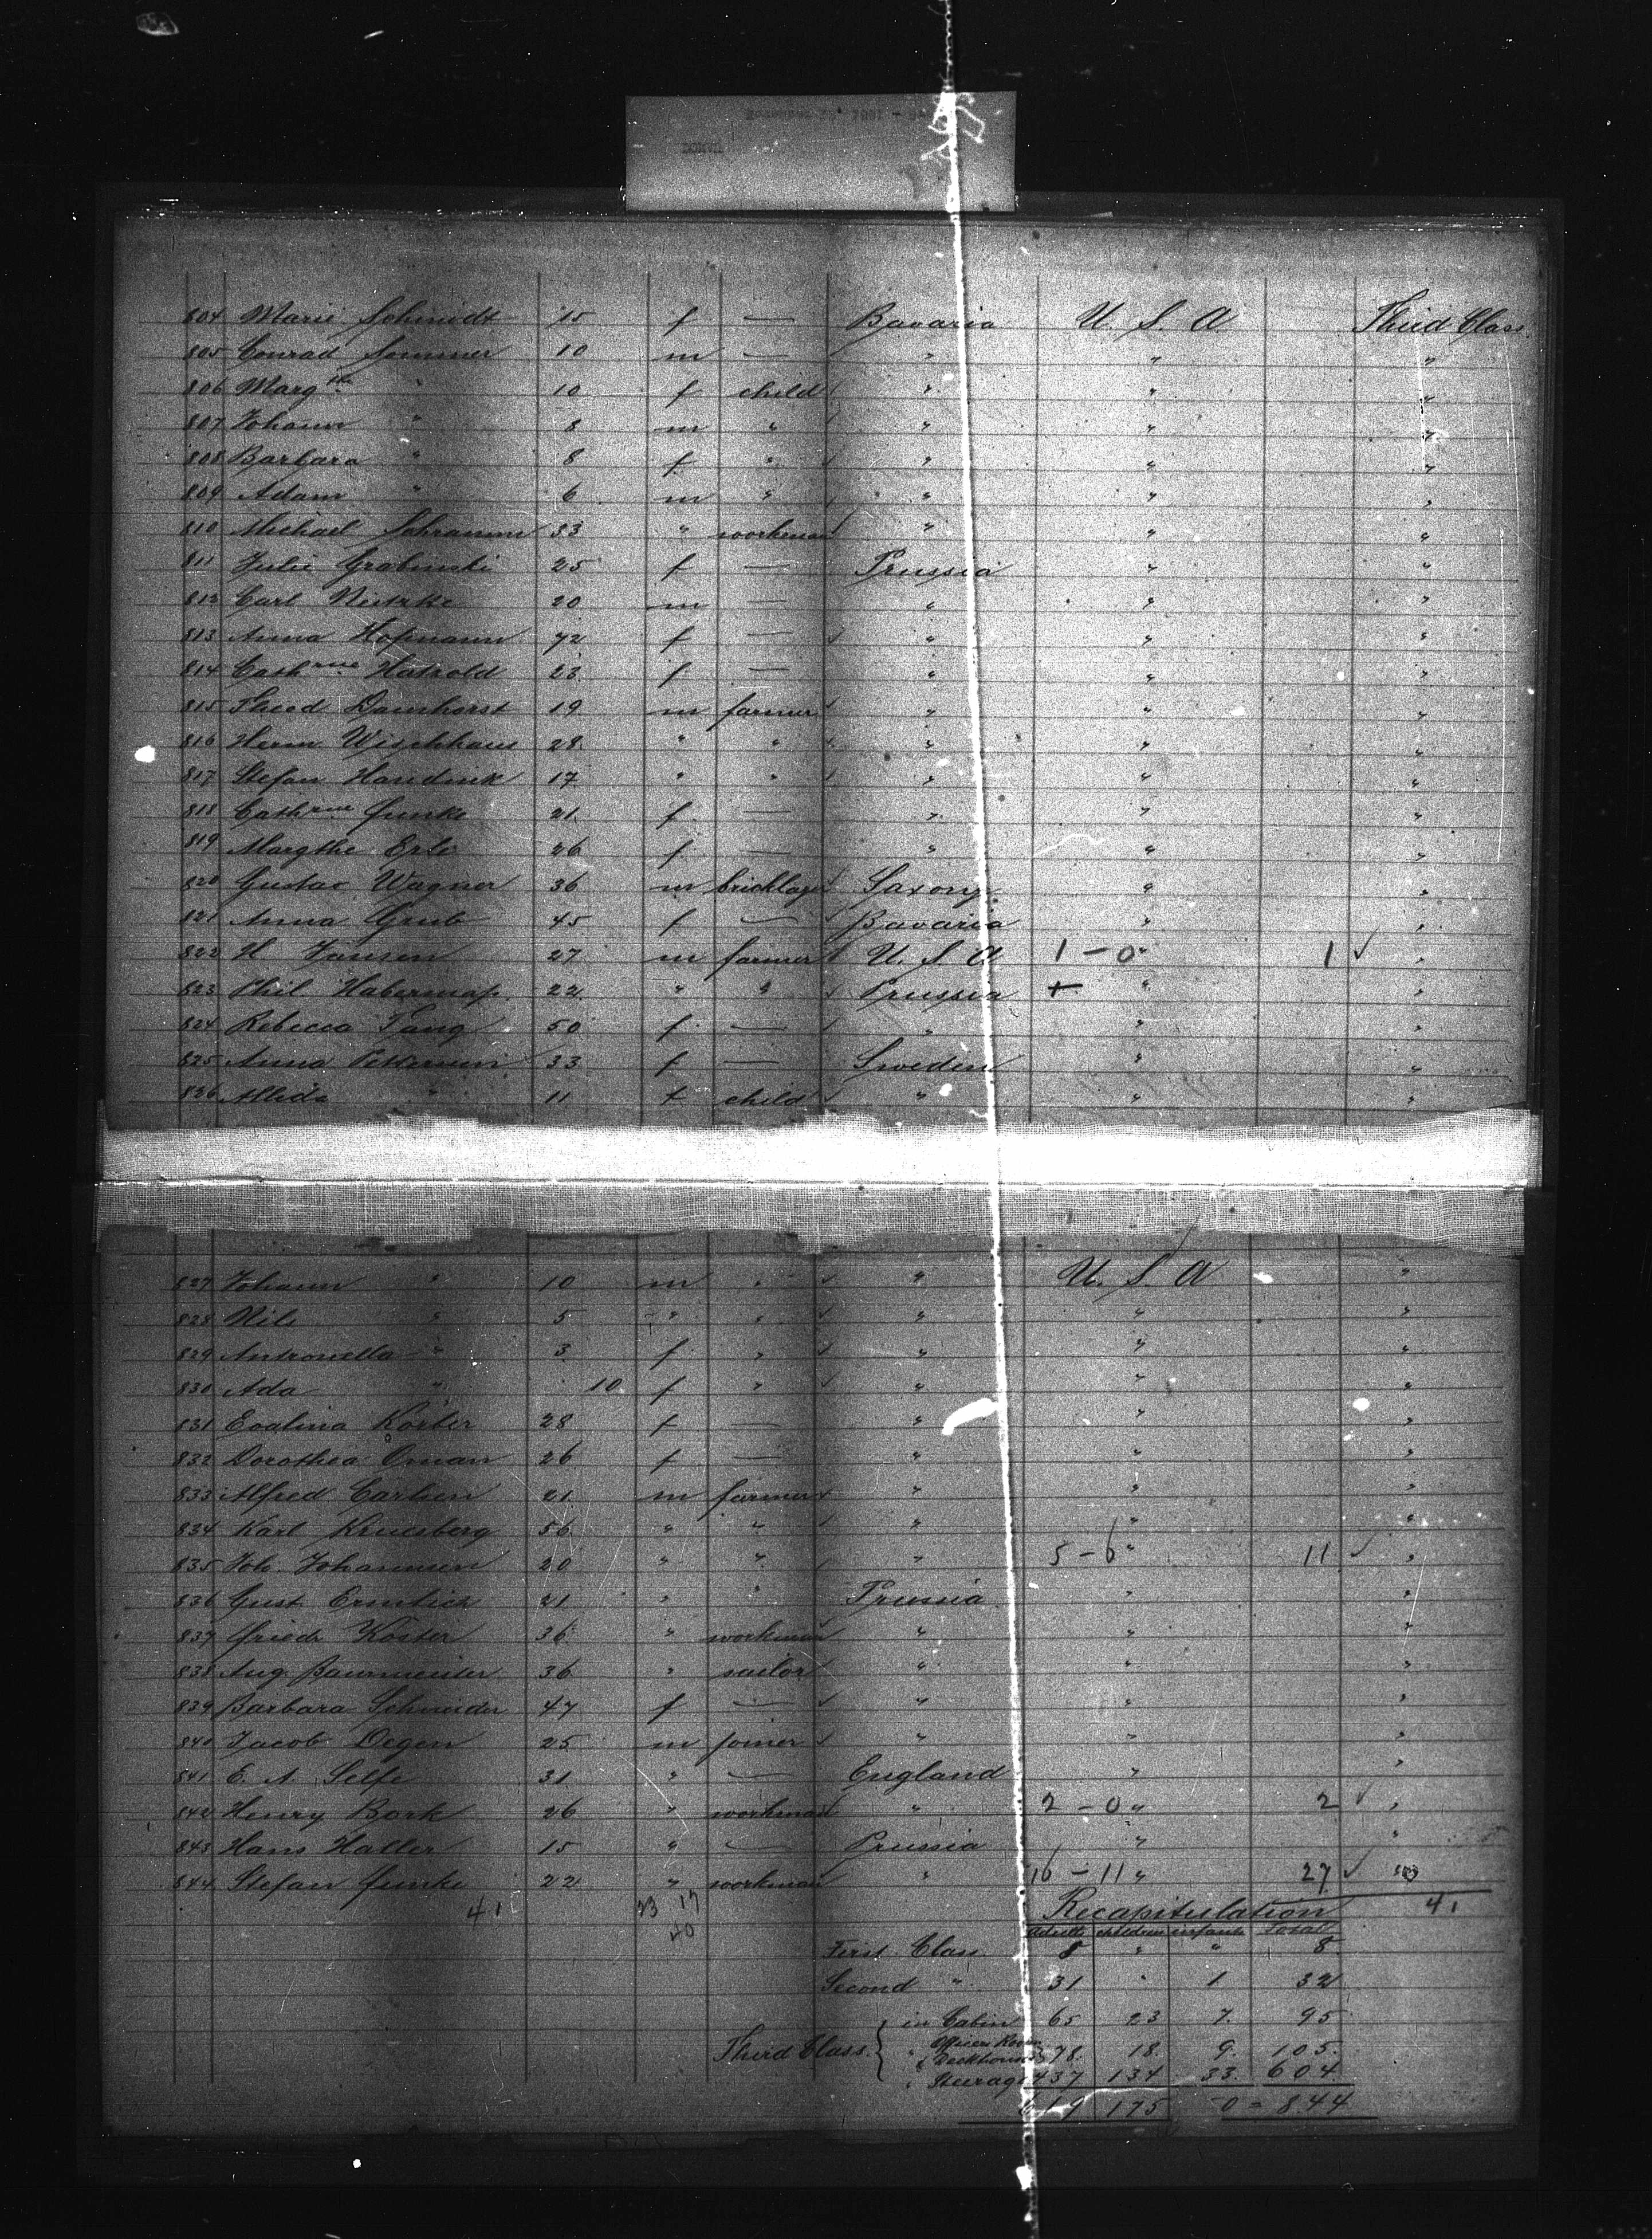 804 Marie Schmidt 15 f — Bavaria U. S. A Third Class
805 Conrad Sommer 10 m — " " "
806 Margthe " 10 f child " " "
807 Johann " 8 m " " " "
808 Barbara " 8 f " " " "
809 Adam " 6 m " " " "
810 Michael Schramm 33 " workman " " "
811 Julie Grabinski 25 f — Prussia " "
812 Carl Nietzke 20 m — " " "
813 Anna Hofmann 72 f — " " "
814 Cathrne Hatzold 23 f — " " "
815 Theod Damhorst 19 m farmer " " "
816 Herm. Wischhaus 28 " " " " "
817 Stefan Handwick 17 " " " " "
818 Cathrne Funke 21 f — " " "
819 Margthe Erle 26 f — " " "
820 Gustav Wagner 36 m bricklayer Saxony " "
821 Anna Grub 45 f — Bavaria " "
822 H Jansen 27 m farmer U. S. A 1 – 0 " 1 ✓ "
823 Phil. 22 " " Prussia + " "
824 Rebecca Tang 50 f — " " "
825 Anna 33 f — Sweden " "
826 " 11 f child " " "
827 Johann " 10 m " " U. S. A "
828 Nils " 5 " " " " "
829 Antronella " 3 f " " " "
830 Ada " 10 f " " " "
831 Evalina Korber 28 f — " " "
832 Dorothea Öman 26 f — " " "
833 Alfred Carlsen 21 m farmer " " "
834 Karl 56 " " " " "
835 Joh. Johannsen 20 " " " 5 – 6 " 11 ✓ "
836 Gust. 21 " " Prussia " "
837 Friedr Köster 36 " workman " " "
838 Aug. Baurmeister 36 " sailor " " "
839 Barbara Schneider 47 f — " " "
840 Jacob Degen 25 m joiner " " "
841 E. A. Selfe 31 " — England " "
842 Henry Bork 26 " workman " 2 – 0 " 2 ✓ "
843 Hans Haller 15 " — Prussia " "
844 Stefan Funke 22 " workman " 16 – 11 " 27 ✓
41 23 17 Recapitulation 41
40 adults children infants Total
First Class 8 " " 8
Second " 31 " 1 32
in Cabin 65 23 7. 95
Third Class { " Officers Room & Deckhouse 78. 18 9. 105.
" Steerage 437 134 33. 604
619 175 0 = 844